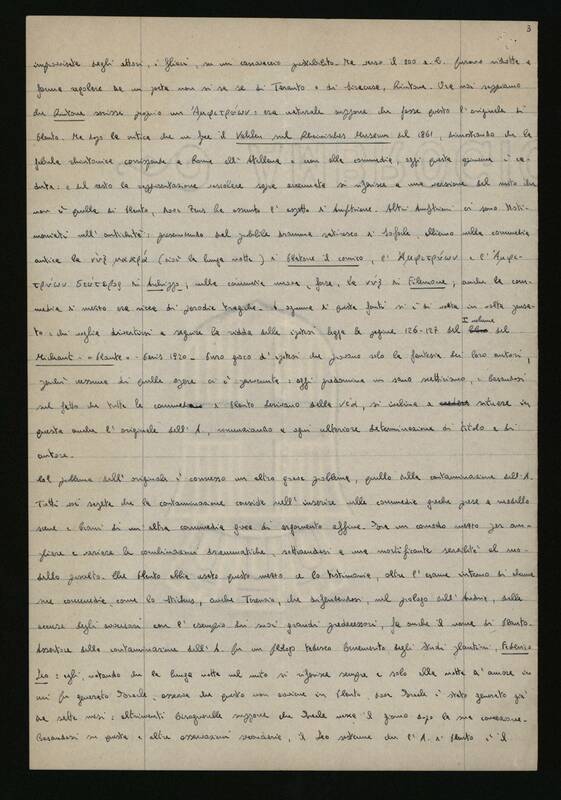 3
improvvisate dagli attori, i fliaci, su un canovaccio prestabilito. Ma verso il 300 a. C. furono ridotte a
forma regolare da un poeta non si sa se di Taranto o di Siracusa, Rintone. Ora noi sappiamo
che Rintone scrisse proprio un Ἀμφιτρύων: era naturale supporre che fosse questo l'originale di
Plauto. Ma dopo la critica che ne fece il Vahlen sul Rheinisches Museum del 1861, dimostrando che la
fabula rhintonica corrisponde a Roma all'Atellana e non alla commedia, oggi questa opinione è ca-
duta: e del resto la rappresentazione vascolare sopra accennata si riferisce a una versione del mito che
non è quella di Plauto, dove Zeus ha assunto l'aspetto di Anfitrione. Altri Anfitrioni ci sono testi-
moniati nell'antichità: prescindendo dal dramma satiresco di Sofocle, abbiamo nella commedia
antica la νὺξ μακρά (cioè la lunga notte) di Platone il comico, l'Ἀμφιτρύων e l'Ἀμφι-
τρύων δεύτερος di Archippo, nella commedia nuova, forse, la νύξ di Filemone, anche la com-
media di mezzo era ricca di parodie tragiche. A ognuna di queste fonti si è di volta in volta pensa-
to: chi voglia divertirsi a seguire la ridda delle ipotesi legga le pagine 126-127 del I volume del
Michaut - «Plaute» - Paris 1920 - Puro gioco d'ipotesi che giovano solo la fantasia dei loro autori,
giacchè nessuna di quelle opere ci è pervenuta: oggi predomina un sano scetticismo, e basandosi
sul fatto che tutte le commedie di Plauto derivano dalla νέα, si inclina a situare in
questa anche l'originale dell'A., rinunziando a ogni ulteriore determinazione di titolo e di
autore.
Col problema dell'originale è connesso un altro grave problema, quello della contaminazione dell'A.
Tutti voi sapete che la contaminazione consiste nell'inserire nella commedia greca presa a modello
scene e brani di un'altra commedia greca di argomento affine. Era un comodo mezzo per am-
pliare e variare le combinazioni drammatiche, sottraendosi a una mortificante servilità al mo-
dello prescelto. Che Plauto abbia usato questo mezzo ce lo testimonia, oltre l'esame interno di alcune
sue commedie, come lo Stichus, anche Terenzio, che difendendosi, nel prologo dell'Andria, dalle
accuse degli avversari con l'esempio dei suoi grandi predecessori, fa anche il nome di Plauto.
Assertore della contaminazione dell'A. fu un filologo tedesco benemerito degli studi plautini, Federico
Leo: egli, notando che la lunga notte nel mito si riferisce sempre e solo alla notte d'amore in
cui fu generato Eracle, osserva che questo non avviene in Plauto, dove Eracle è stato generato già
da sette mesi: altrimenti bisognerebbe supporre che Eracle nasca il giorno dopo la sua concezione.
Basandosi su questa e altre osservazioni secondarie, il Leo sostenne che l'A. di Plauto è il